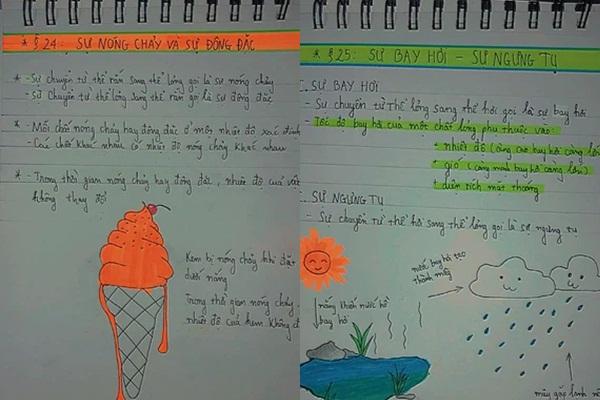 * § 24: SỰ NÓNG CHẢY VÀ SỰ ĐÔNG ĐẶC
* - Sự chuyển từ thể rắn sang thể lỏng gọi là sự nóng chảy
- Sự chuyển từ thể lỏng sang thể rắn gọi là sự đông đặc
* - Mỗi chất nóng chảy hay đông đặc ở một nhiệt độ xác định
- Các chất khác nhau có nhiệt độ nóng chảy khác nhau
* - Trong thời gian nóng chảy hay đông đặc, nhiệt độ của vật
không thay đổi
Kem bị nóng chảy khi đặt
dưới nắng
Trong thời gian nóng chảy
nhiệt độ của kem không
* § 25: SỰ BAY HƠI - SỰ NGƯNG TỤ
I. SỰ BAY HƠI
- Sự chuyển từ thể lỏng sang thể hơi gọi là sự bay hơi
- Tốc độ bay hơi của một chất lỏng phụ thuộc vào:
+ nhiệt độ (càng cao bay hơi càng lớn)
+ gió (càng mạnh bay hơi càng lớn)
+ diện tích mặt thoáng
I. SỰ NGƯNG TỤ
- Sự chuyển từ thể hơi sang thể lỏng gọi là sự ngưng tụ
nước bay hơi tạo
thành mây
nắng khiến nước hồ
bay hơi
mây gặp lạnh